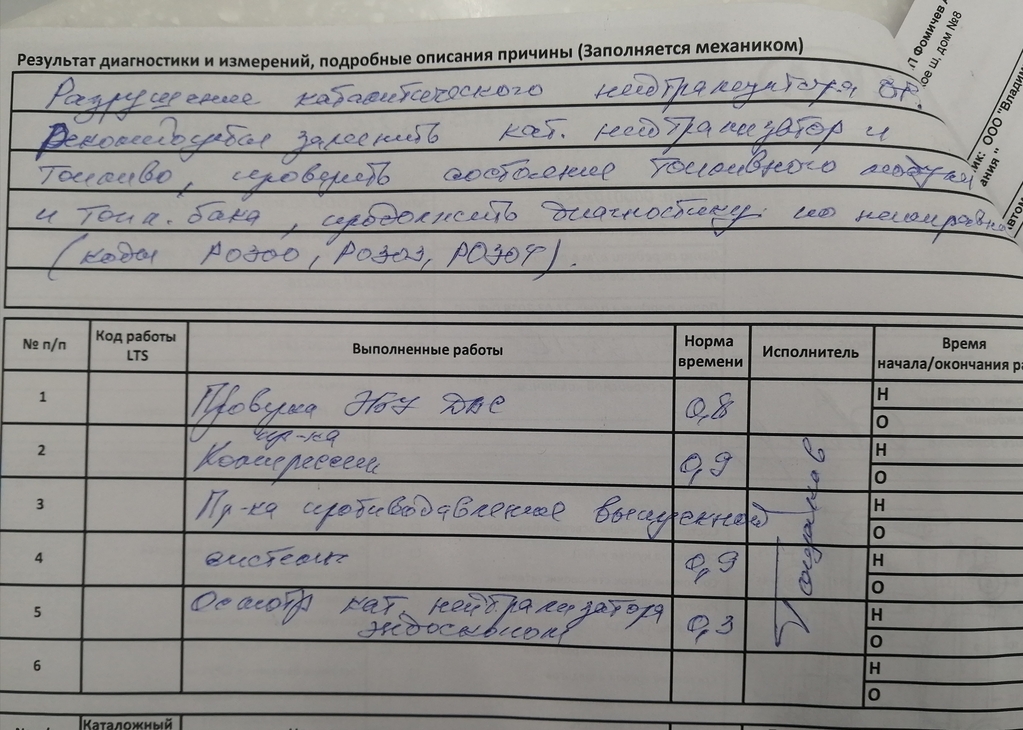 П Фомичев А
ое ш, дом №8
ик: ООО "Владим
ания "
втом
Результат диагностики и измерений, подробные описания причины (Заполняется механиком)
Разрушение каталитического нейтрализатора ОГ.
Рекомендуется заменить кат. нейтрализатор и
топливо, проверить состояние топливного модуля
и топл. бака, продолжить диагностику по неисправно
(коды P0300, P0303, P0304).
№ п/п Код работы LTS Выполненные работы Норма времени Исполнитель Время начала/окончания ра
1 Проверка ЭБУ ДВС 0,8 Н
О
2 пр-ка Компрессии 0,9 Н
О
3 Пр-ка противодавления выпускной Н
О
4 системы 0,9 Н
О
5 Осмотр кат. нейтрализатора 0,3 Н
эндоскопом О
6 Н
О
Каталожный